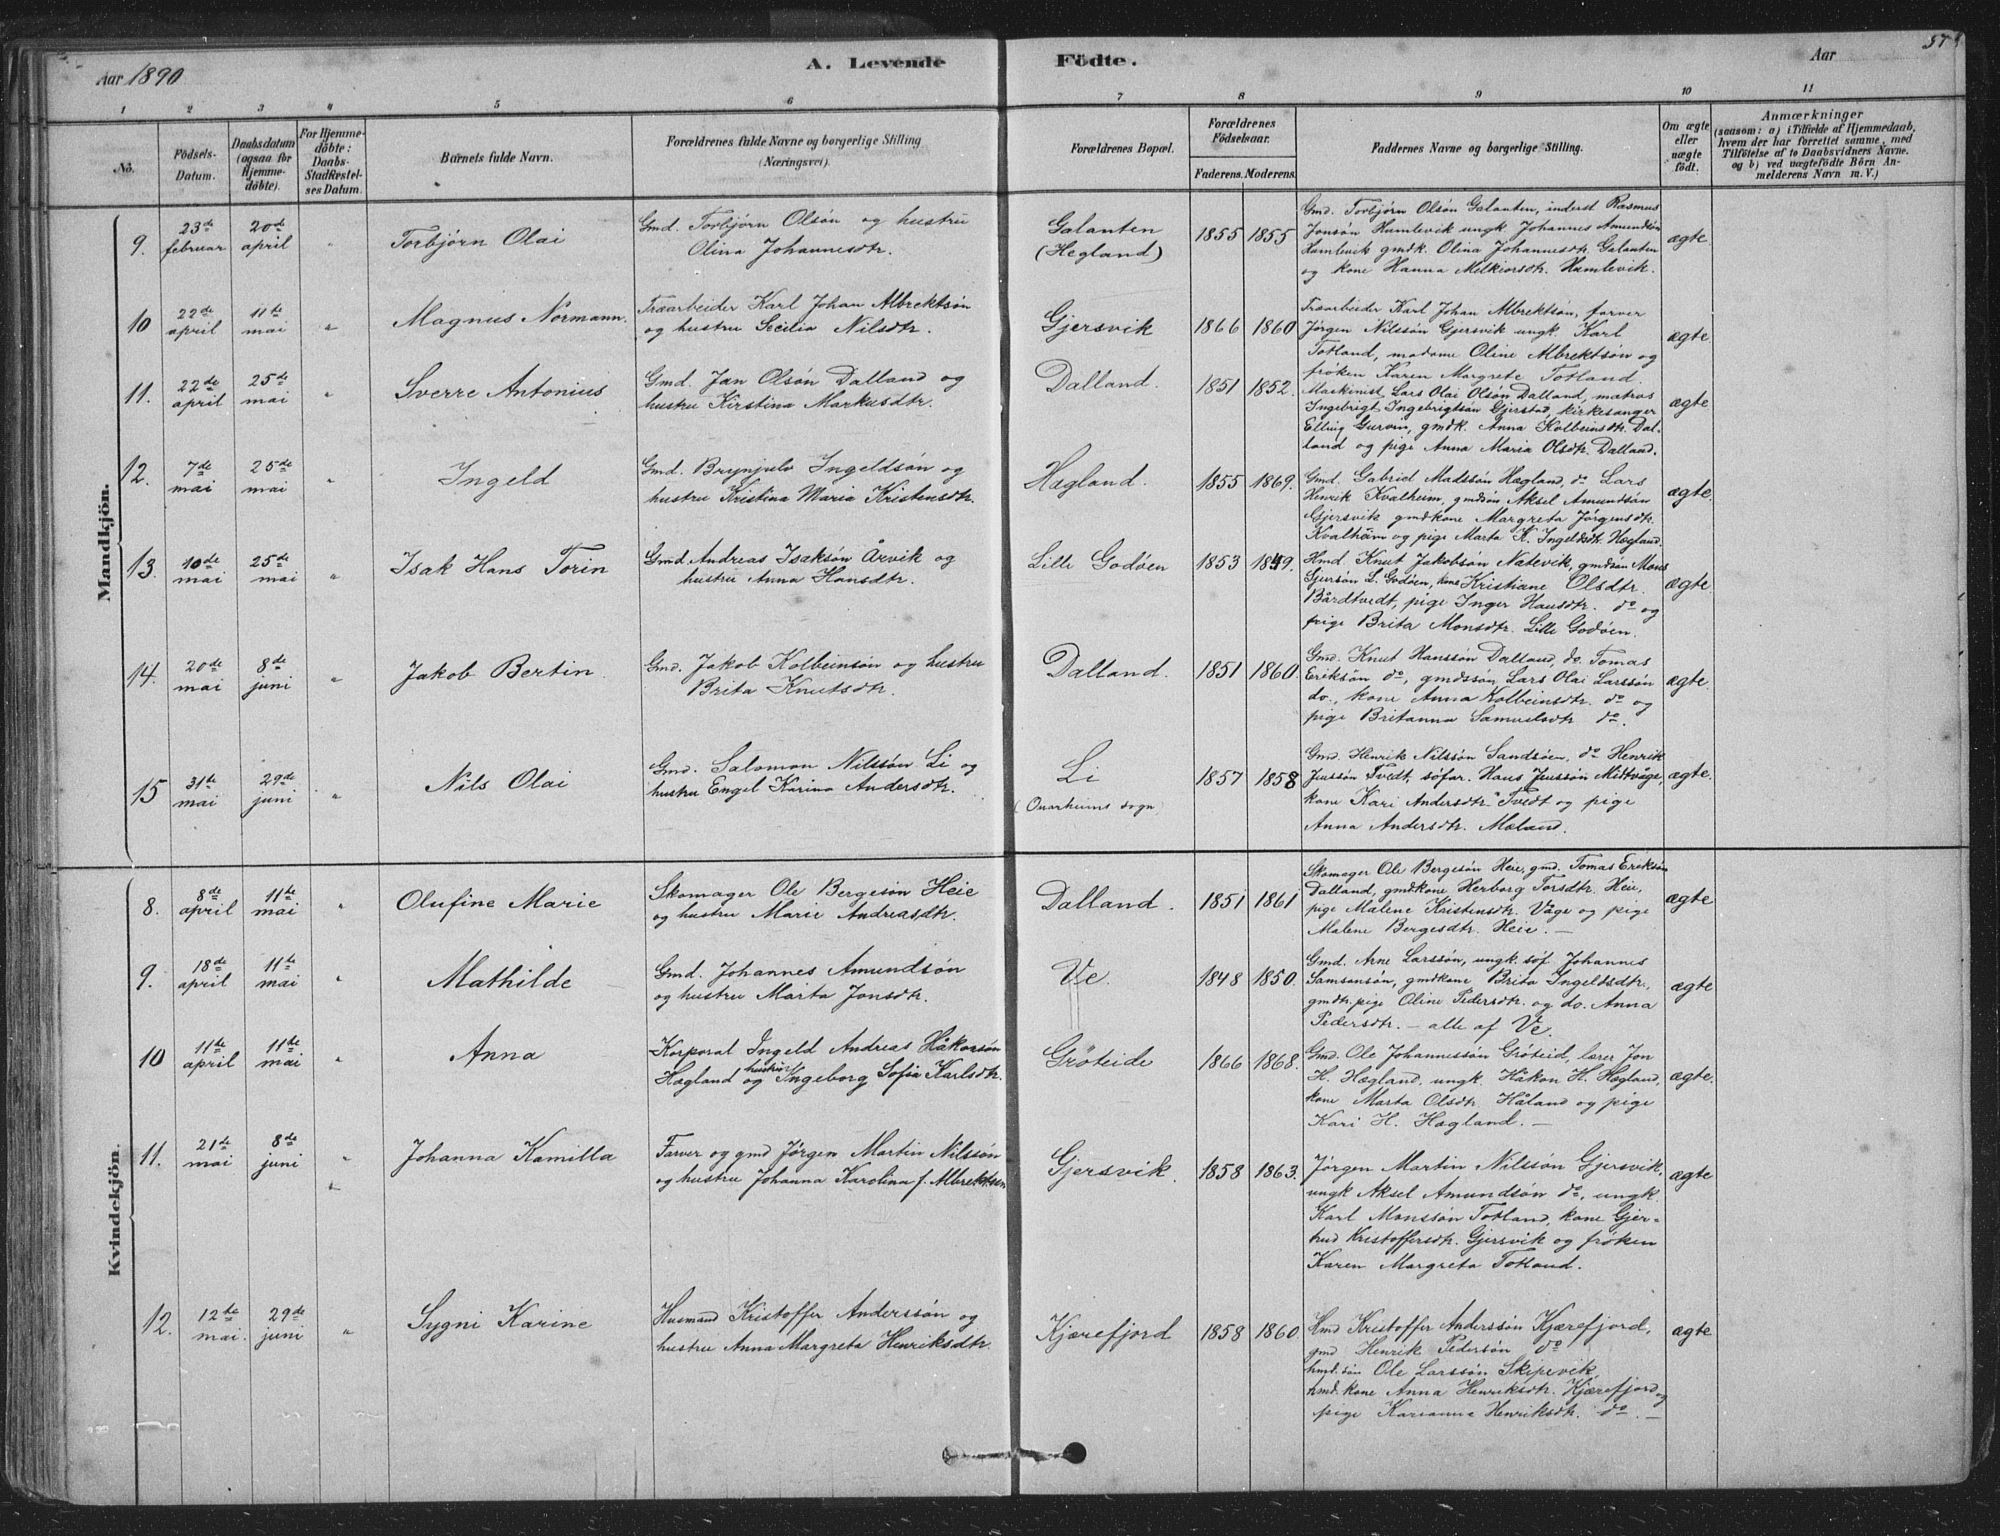 Aar 1890
A. Levende Födte.
Aar
57
1 2 3 4 5 6 7 8 9 10 11
No.
Födsels-Datum.
Daabsdatum (ogsaa for Hjemme-döbte).
For Hjemme-döbte: Daabs-Stadfæstel-ses Datum.
Barnets fulde Navn.
Forældrenes fulde Navne og borgerlige Stilling (Næringsvei).
Forældrenes Bopæl.
Forældrenes Födselsaar.
Faderens. Moderens.
Faddernes Navne og borgerlige Stilling.
Om ægte eller uægte födt.
Anmærkninger
(saasom: a) i Tilfælde af Hjemmedaab, hvem der har forrettet samme, med Tilföielse af to Daabsvidners Navne. og b) ved uægtefödte Börn An-melderens Navn m. V.)
Mandkjön.
9. 23de februar 20de april " Torbjörn Olai
Gmd. Torbjörn Olsön og hustru
Olina Johannesdtr.
Galanten
(Hegland)
1855 1855
Gmd. Torbjörn Olsön Galanten, inderst Rasmus
Jonsön Hamlevik ungk Johannes Amundsön
Hamlevik gmdk. Olina Johannesdtr. Galanten
og kone Hanna Melkiorsdtr. Hamlevik.
ægte.
10 22de april 11te mai " Magnus Normann.
Træarbeider Karl Johan Albrektsön
og hustru Secilia Nilsdtr.
Gjersvik
1866 1860
Træarbeider Karl Johan Albrektsön, farver
Jörgen Nilssön Gjersvik ungk Karl
Totland, madame Oline Albrektsön og
fröken Karen Margrete Totland.
ægte
11. 22de april 25de mai " Sverre Antonius
Gmd. Jan Olsön Dalland og
hustru Kirstina Markusdtr.
Dalland.
1851 1852.
Maskinist Lars Olai Olsön Dalland, matros
Ingebrigt Ingebrigtsön Gjerstad, kirkesanger
Elling Gurvin, gmdk. Anna Kolbeinsdtr. Dal-
land og pige Anna Maria Olsdtr. Dalland.
ægte
12. 7de mai 25de mai " Ingeld
Gmd. Brynjulv Ingeldsön og
hustru Kristina Maria Kristensdtr.
Hægland.
1855 1869.
Gmd. Gabriel Madssön Hægland, do Lars
Henrik Kvalheim, gmdsön Aksel Amundsön
Gjersvik gmdkone Margreta Jörgensdtr.
Kvalheim og pige Marta K. Ingeldsdtr. Hægland.
ægte.
13. 10de mai 25de mai " Isak Hans Torin
Gmd. Andreas Isaksön Årvik og
hustru Anna Hansdtr.
Lille Godöen
1853 1849.
Hmd. Knut Jakobsön Natevik, gmdsön Mons
Sjursön L. Godöen, kone Kristiane Olsdtr.
Bårdtvedt, pige Inger Hansdtr. do og
pige Brita Monsdtr. Lille Godöen.
ægte.
14. 20de mai 8de juni " Jakob Bertin.
Gmd. Jakob Kolbeinsön og hustru
Brita Knutsdtr.
Dalland.
1851 1860.
Gmd. Knut Hanssön Dalland, do. Tomas
Eriksön do, gmdssön Lars Olai Larssön
do., kone Anna Kolbeinsdtr. do og
pige Britanna Samuelsdtr do.
ægte
15 31te mai 29de juni " Nils Olai
Gmd. Salomon Nilssön Li og
hustru Engel Karina Andersdtr.
Li
(Onarheims sogn)
1857 1858
Gmd. Henrik Nilssön Sandsöen, do Henrik
Jenssön Tvedt, söfar. Hans Jenssön Midtvåge,
kone Kari Andersdtr. Tvedt og pige
Anna Andersdtr. Meland.
ægte.
Kvindekjön.
8. 8de april 11te mai " Olufine Marie
Skomager Ole Bergesön Heie
og hustru Marie Andreasdtr.
Dalland.
1851 1861
Skomager Ole Bergesön Heie, gmd. Tomas Eriksön
Dalland, gmdkone Herborg Torsdtr. Heie,
pige Malene Kristensdtr. Våge og pige
Malene Bergesdtr. Heie. —
ægte
9. 18de april 11te mai " Mathilde
Gmd. Johannes Amundsön
og hustru Marta Jonsdtr.
Ve.
1848 1850.
Gmd. Arne Larssön, ungk. söf. Johannes
Samsonsön, gmdkone Brita Ingeldsdtr.,
gmdtr. pige Oline Pedersdtr. og do. Anna
Pedersdtr. — alle af Ve.
ægte
10 11te april 11te mai " Anna
Korporal Ingeld Andreas Håkonsön
Hægland og hustru Ingeborg Sofia Karlsdtr.
Gröteide
1866 1868.
Gmd. Ole Johannessön Gröteid, lærer Jon
H. Hægland, ungk. Håkon H. Hægland,
kone Marta Olsdtr. Håland og pige
Kari H. Hægland. —
ægte.
11. 21de mai 8de juni " Johanna Kamilla
Farver og gmd Jörgen Martin Nilssön
og hustru Johanna Karolina f. Albrektsen
Gjersvik.
1858 1863.
Jörgen Martin Nilssön Gjersvik,
ungk Aksel Amundsön do, ungk.
Karl Monssön Totland, kone Gjer-
trud Kristoffersdtr. Gjersvik og fröken
Karen Margreta Totland.
ægte
12. 12te mai. 29de juni " Sygni Karine
Husmand Kristoffer Anderssön og
hustru Anna Margreta Henriksdtr.
Kjærefjord
1858 1860.
Hmd Kristoffer Anderssön Kjærefjord,
gmd Henrik Pedersön do
hmd.sön Ole Larssön Skipevik,
hmd.kone Anna Henriksdtr. Kjærefjord og
pige Karianna Henriksdtr. do. —
ægte